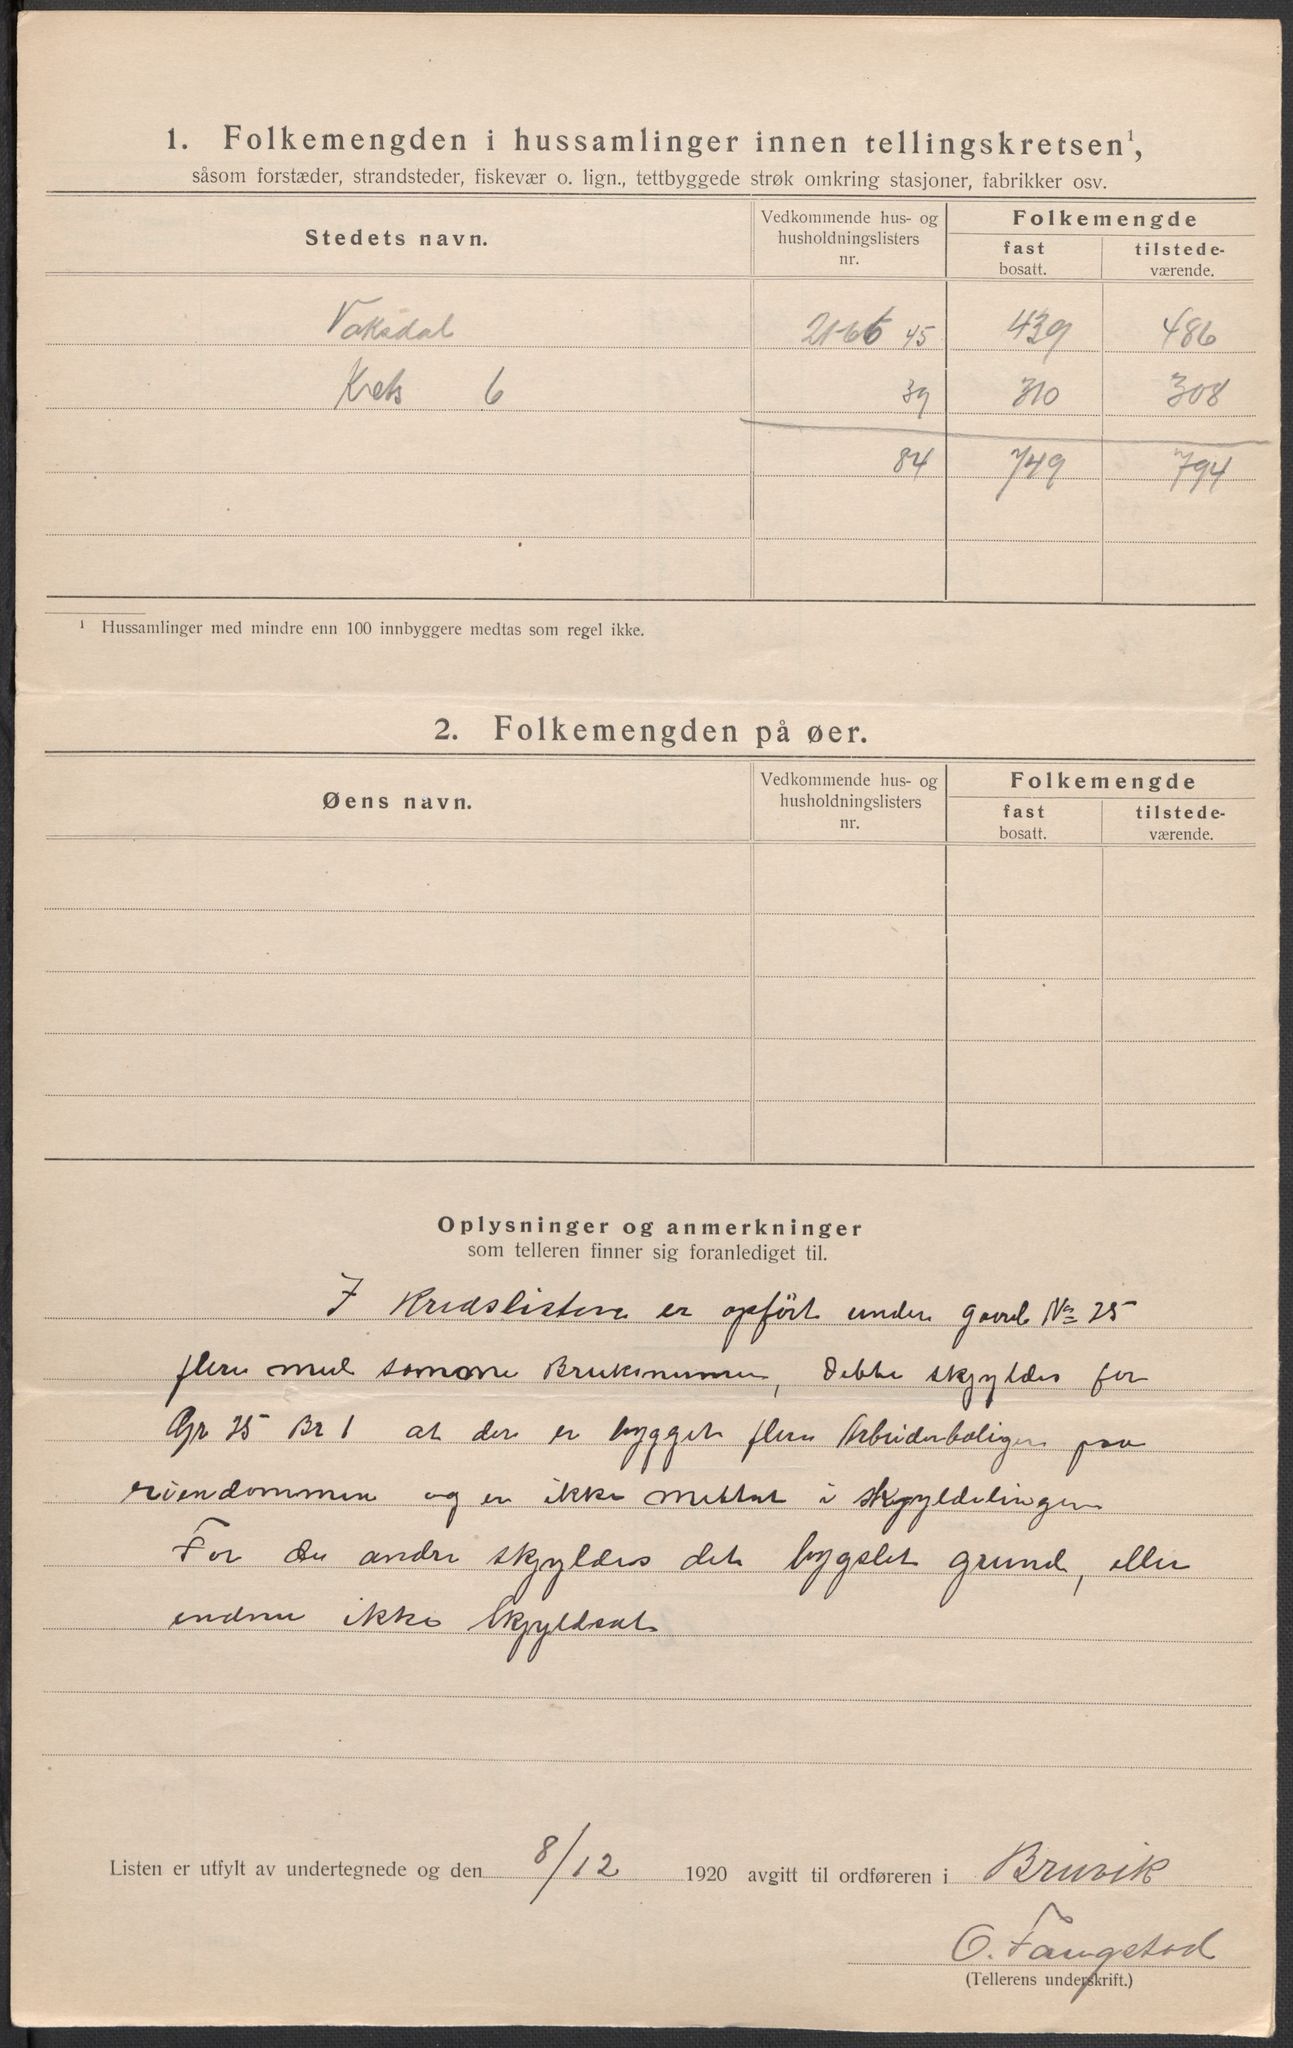 1. Folkemengden i hussamlinger innen tellingskretsen¹,
såsom forstæder, strandsteder, fiskevær o. lign., tettbyggede strøk omkring stasjoner, fabrikker osv.
Stedets navn. Vedkommende hus- og husholdningslisters nr. Folkemengde fast bosatt. tilstede-værende.
Vaksdal 21-65 45 439 486
Krets 6 39 310 308
84 749 794
¹ Hussamlinger med mindre enn 100 innbyggere medtas som regel ikke.
2. Folkemengden på øer.
Øens navn. Vedkommende hus- og husholdningslisters nr. Folkemengde fast bosatt. tilstede-værende.
Oplysninger og anmerkninger
som telleren finner sig foranlediget til.
I Kredslisten er opført under gaard No 25
flere med samme Bruksnummer, dette skyldes for
Gr 25 Br 1 at der er bygget flere Arbeiderboliger paa
eiendommen og er ikke mettat i skyldelingen
For de andre skyldes det bygslet grund, eller
endnu ikke skyldsat
Listen er utfylt av undertegnede og den 8/12 1920 avgitt til ordføreren i Bruvik
O. Faugstad
(Tellerens underskrift.)